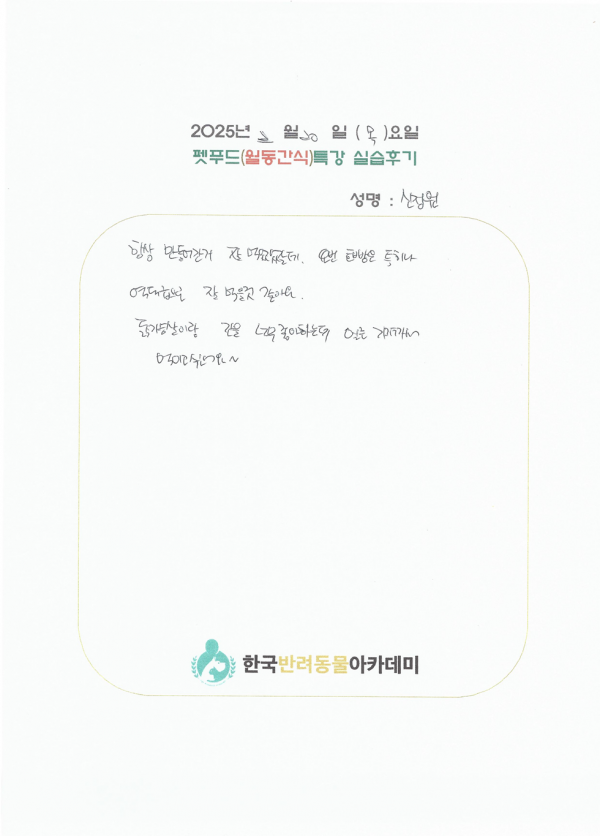 2025년 2 월 20 일 (목)요일
펫푸드(월동간식)특강 실습후기
성명 : 신정원
항상 만들어간거 잘 먹었는데, 이번 특히나
역대급 잘 먹을것 같아요.
닭가슴살이랑 간을 너무 좋아하는데 얼른 가져가서
먹이고싶네요~
한국반려동물아카데미